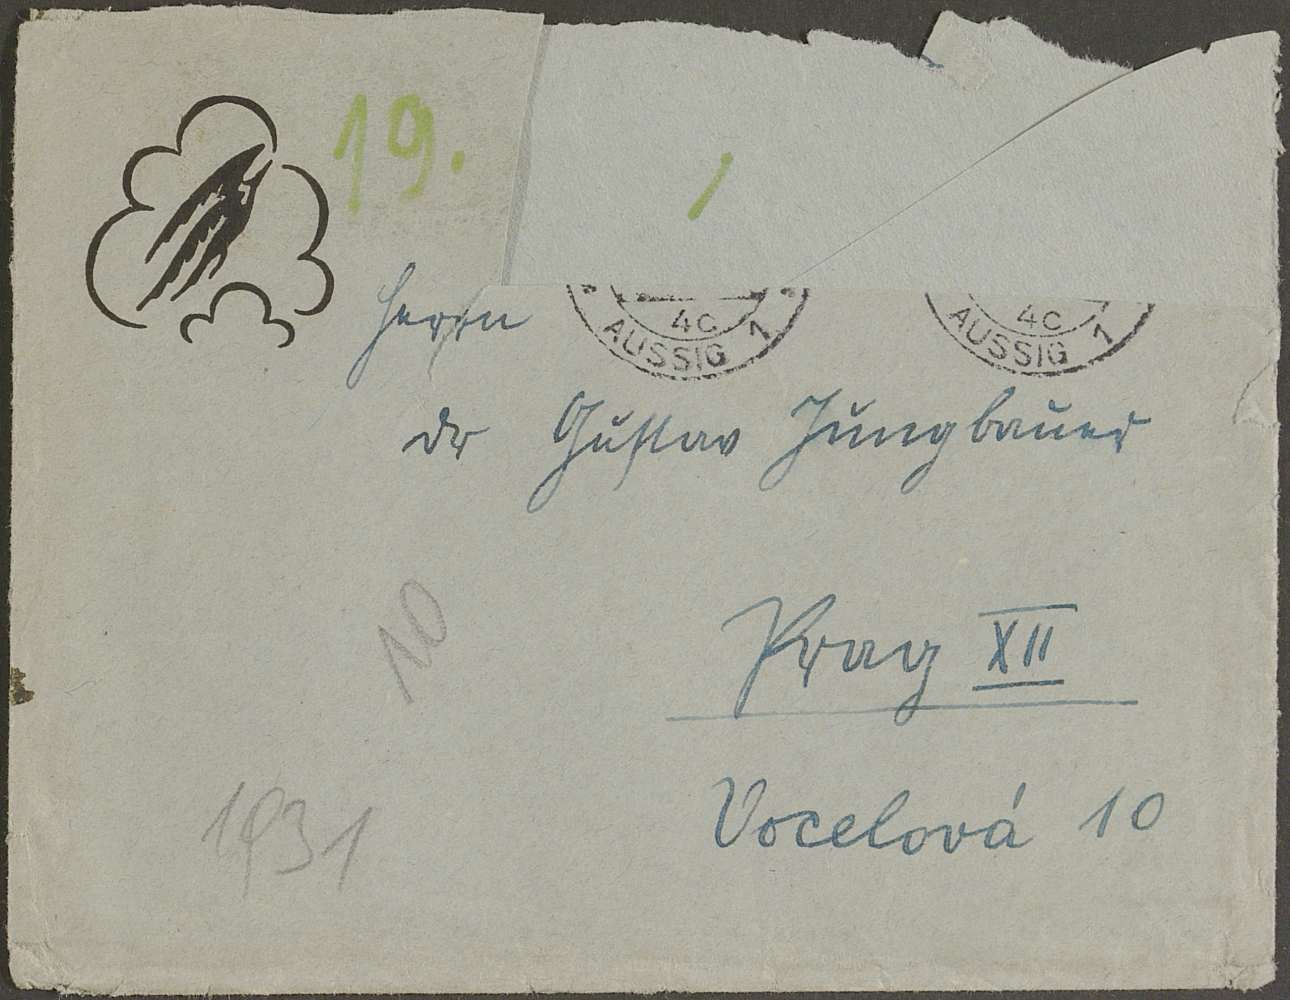 19.
Herrn
4c
AUSSIG 1
4c
AUSSIG 1
Dr Gustav Jungbauer
10
Prag XII
Vocelová 10
1931